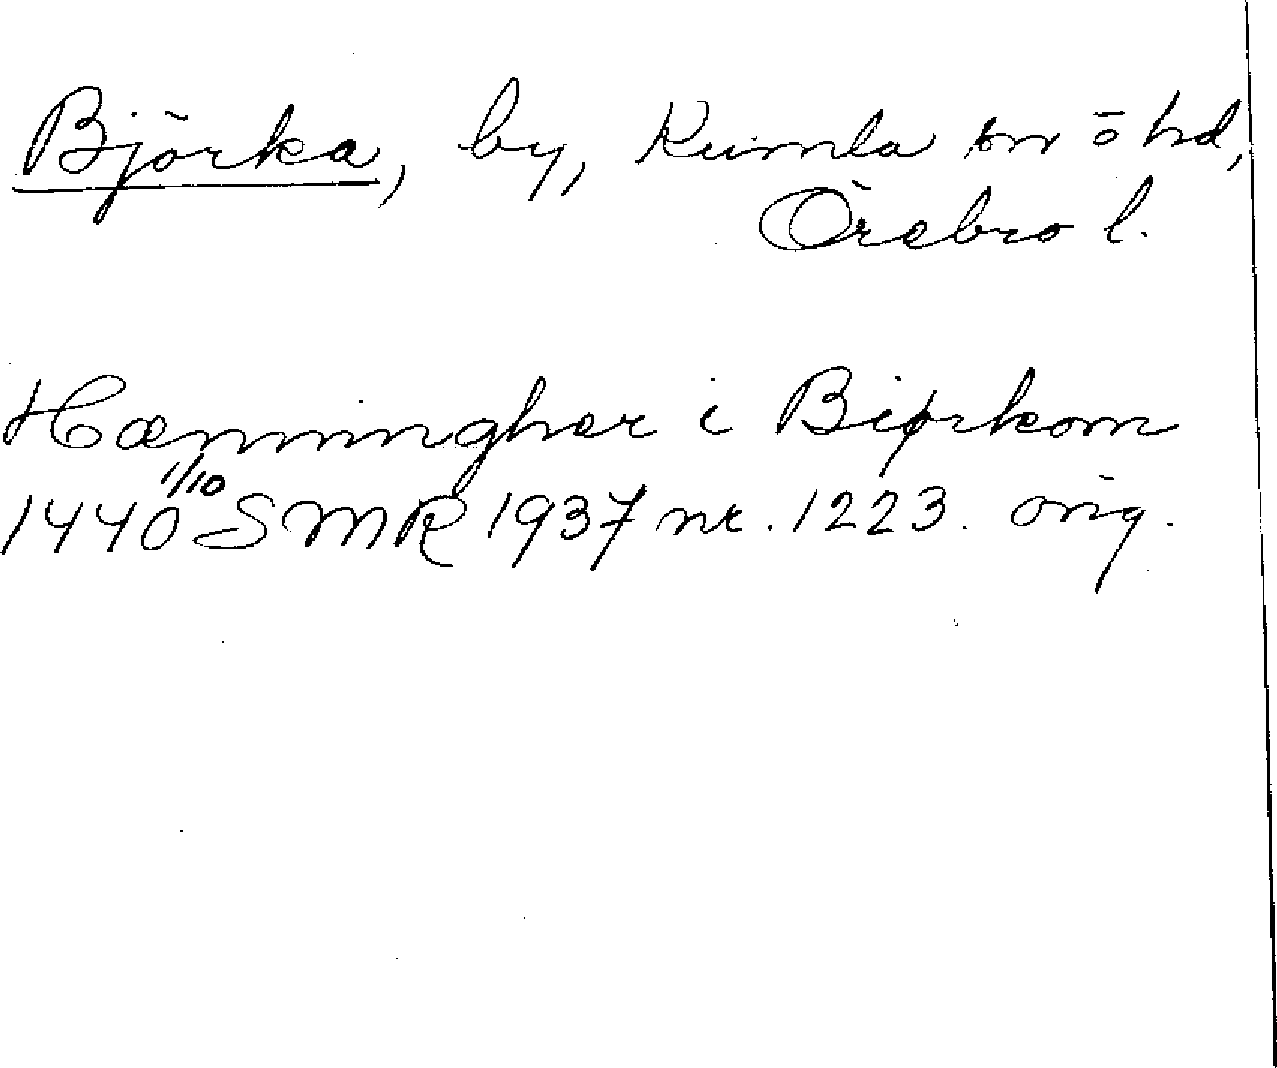 Björka, by, Kumla sn o hd,
Örebro l.
Hænningher i Biørkom
1440 1/10 SMR 1937 nr. 1223. orig.